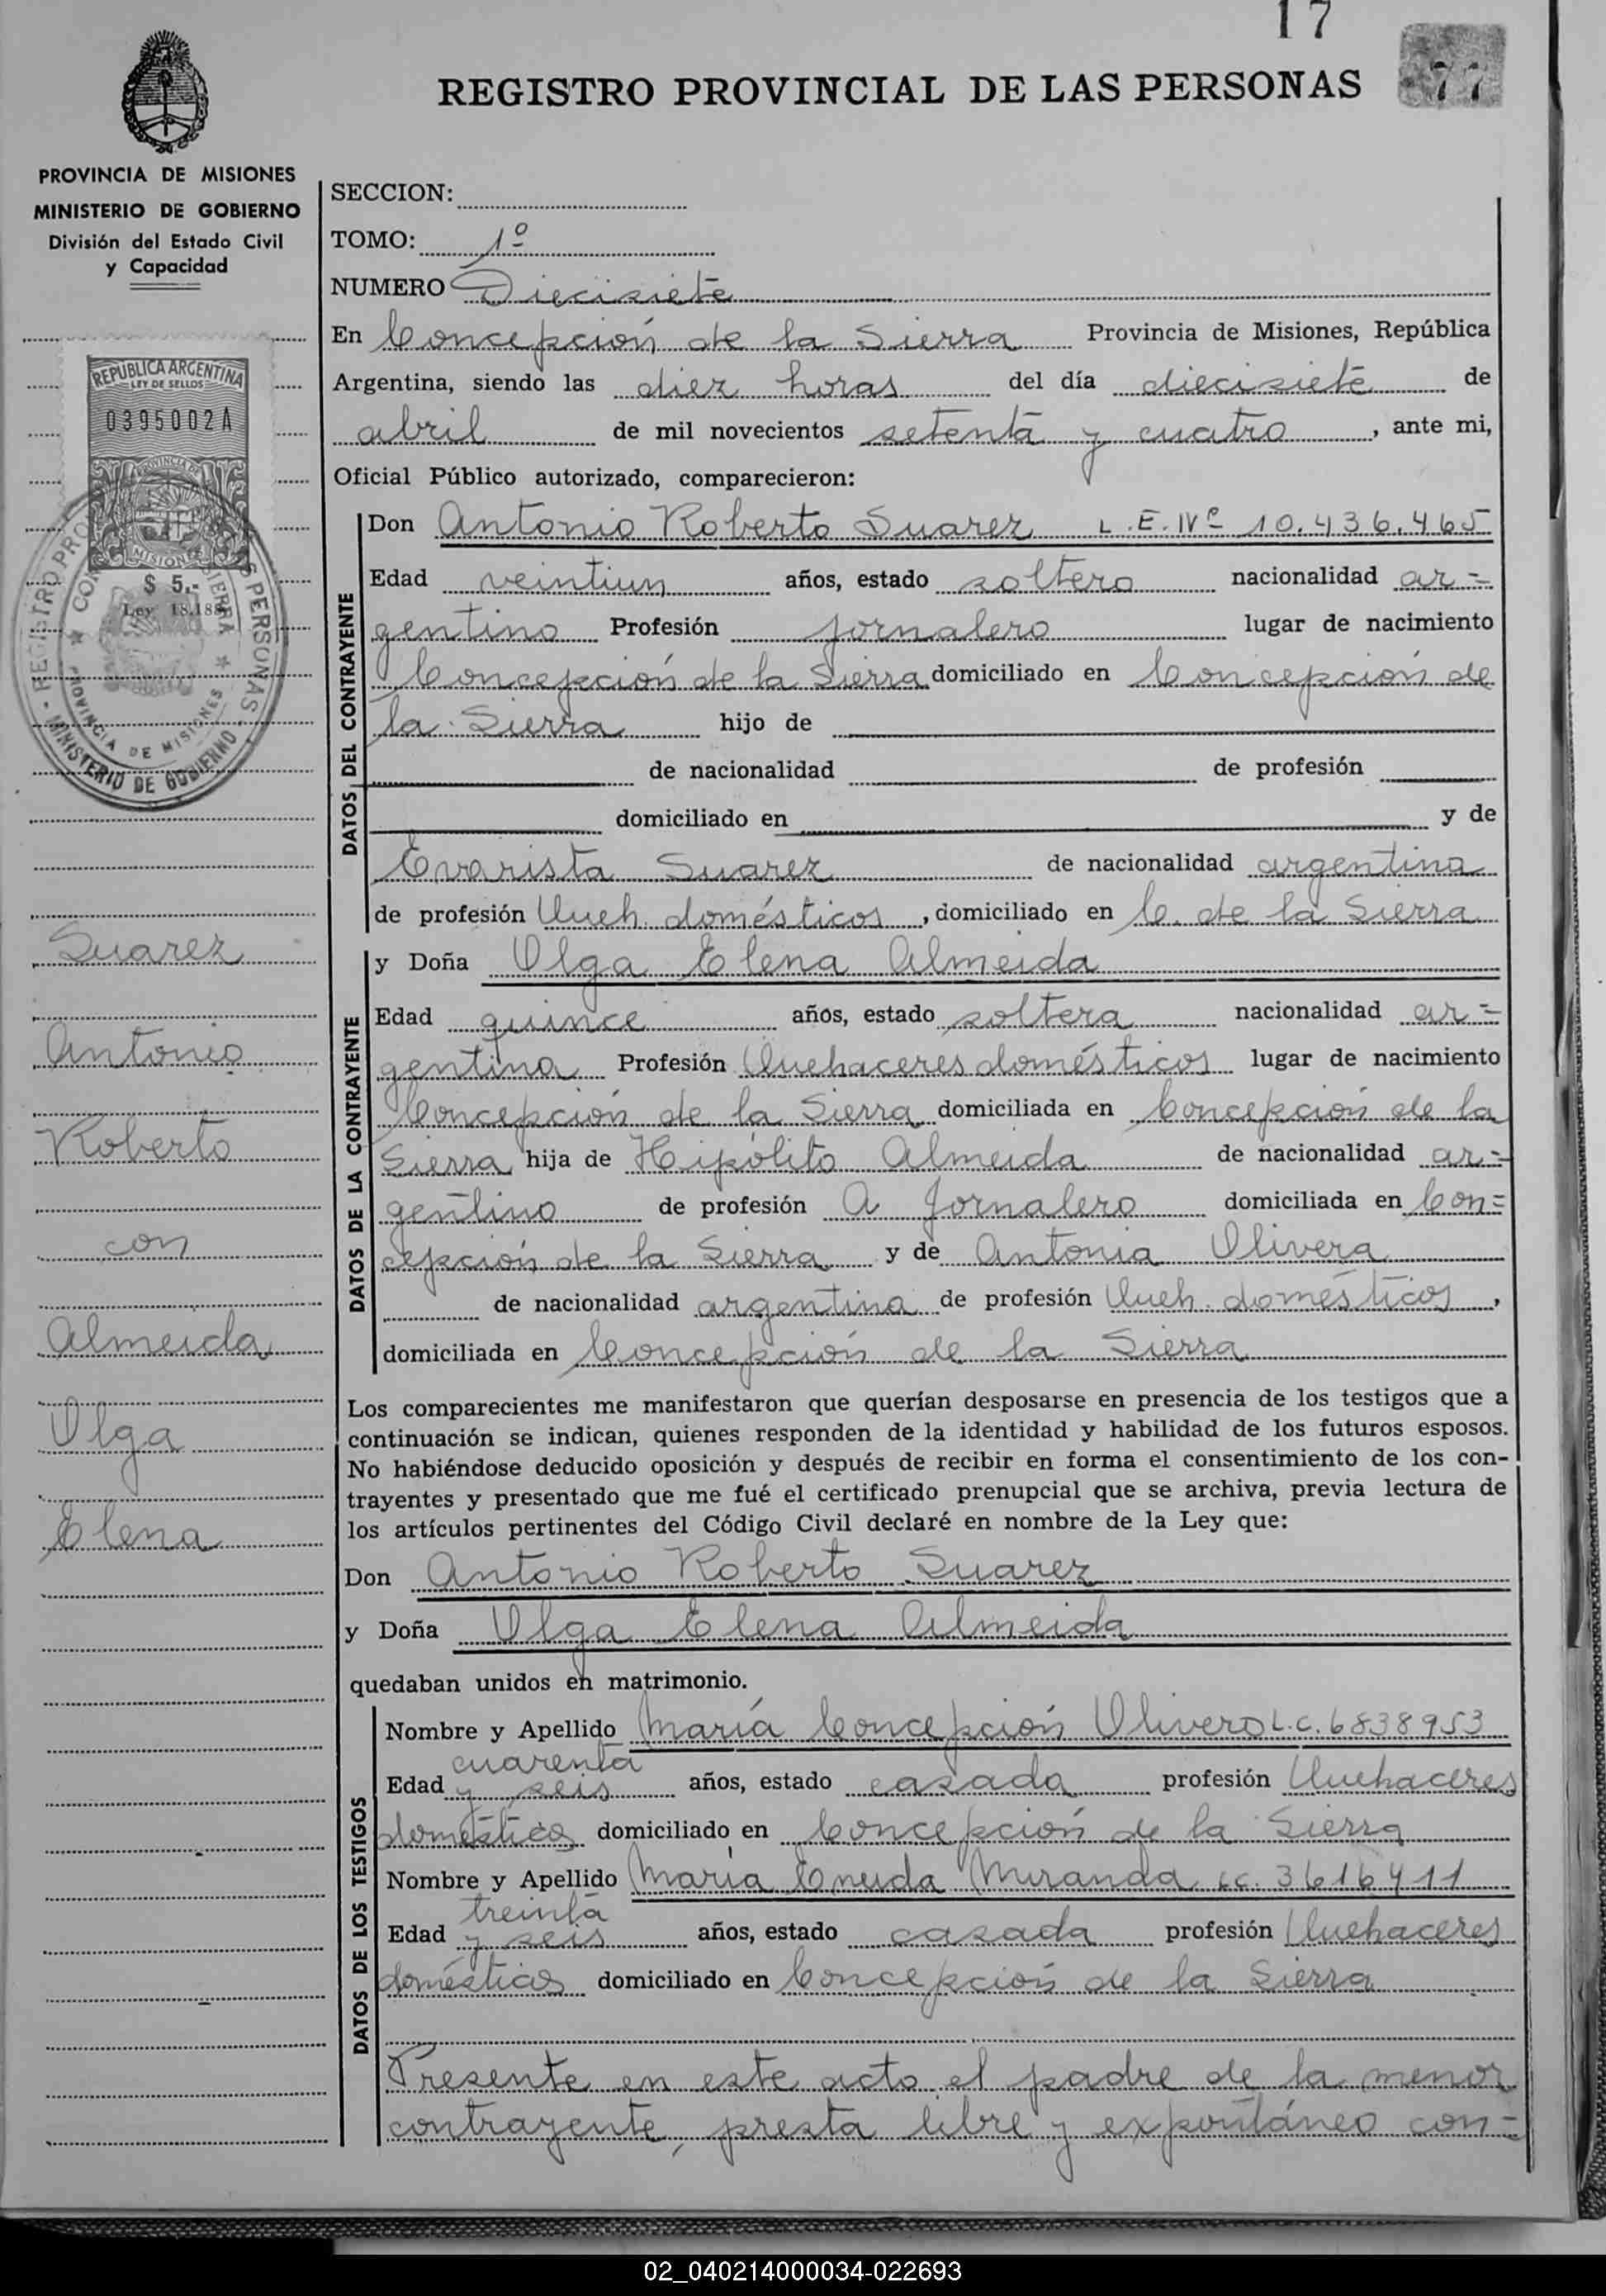 17
77
REGISTRO PROVINCIAL DE LAS PERSONAS
PROVINCIA DE MISIONES
MINISTERIO DE GOBIERNO
División del Estado Civil
y Capacidad
REPUBLICA ARGENTINA
LEY DE SELLOS
0395002A
PROVINCIA DE
MISIONES
$ 5,-
Ley 18.188
PROVINCIA DE MISIONES
MINISTERIO DE GOBIERNO
Suarez
Antonio
Roberto
con
Almeida
Olga
Elena
SECCION:
TOMO: 1º
NUMERO Diecisiete
En Concepción de la Sierra Provincia de Misiones, República
Argentina, siendo las diez horas del día diecisiete de
abril de mil novecientos setenta y cuatro, ante mi,
Oficial Público autorizado, comparecieron:
DATOS DEL CONTRAYENTE
Don Antonio Roberto Suarez L.E. Nº 10.436.465
Edad veintiun años, estado soltero nacionalidad ar=
gentino Profesión jornalero lugar de nacimiento
Concepción de la Sierra domiciliado en Concepción de
la Sierra hijo de
de nacionalidad de profesión
domiciliado en y de
Evarista Suarez de nacionalidad argentina
de profesión Queh. domésticos, domiciliado en C. de la Sierra
DATOS DE LA CONTRAYENTE
y Doña Olga Elena Almeida
Edad quince años, estado soltera nacionalidad ar=
gentina Profesión Quehaceres domésticos lugar de nacimiento
Concepción de la Sierra domiciliada en Concepción de la
Sierra hija de Hipólito Almeida de nacionalidad ar=
gentino de profesión Jornalero domiciliada en Con=
cepción de la Sierra y de Antonia Olivera
de nacionalidad argentina de profesión Queh. domésticos,
domiciliada en Concepción de la Sierra
Los comparecientes me manifestaron que querían desposarse en presencia de los testigos que a
continuación se indican, quienes responden de la identidad y habilidad de los futuros esposos.
No habiéndose deducido oposición y después de recibir en forma el consentimiento de los con-
trayentes y presentado que me fué el certificado prenupcial que se archiva, previa lectura de
los artículos pertinentes del Código Civil declaré en nombre de la Ley que:
Don Antonio Roberto Suarez
y Doña Olga Elena Almeida
quedaban unidos en matrimonio.
DATOS DE LOS TESTIGOS
Nombre y Apellido María Concepción Olivero L.C. 6838953
Edad cuarenta y seis años, estado casada profesión Quehaceres
domésticos domiciliado en Concepción de la Sierra
Nombre y Apellido María Eneida Miranda L.C. 3616411
Edad treinta y seis años, estado casada profesión Quehaceres
domésticos domiciliado en Concepción de la Sierra
Presente en este acto el padre de la menor
contrayente, presta libre y expontáneo con=
02_040214000034-022693